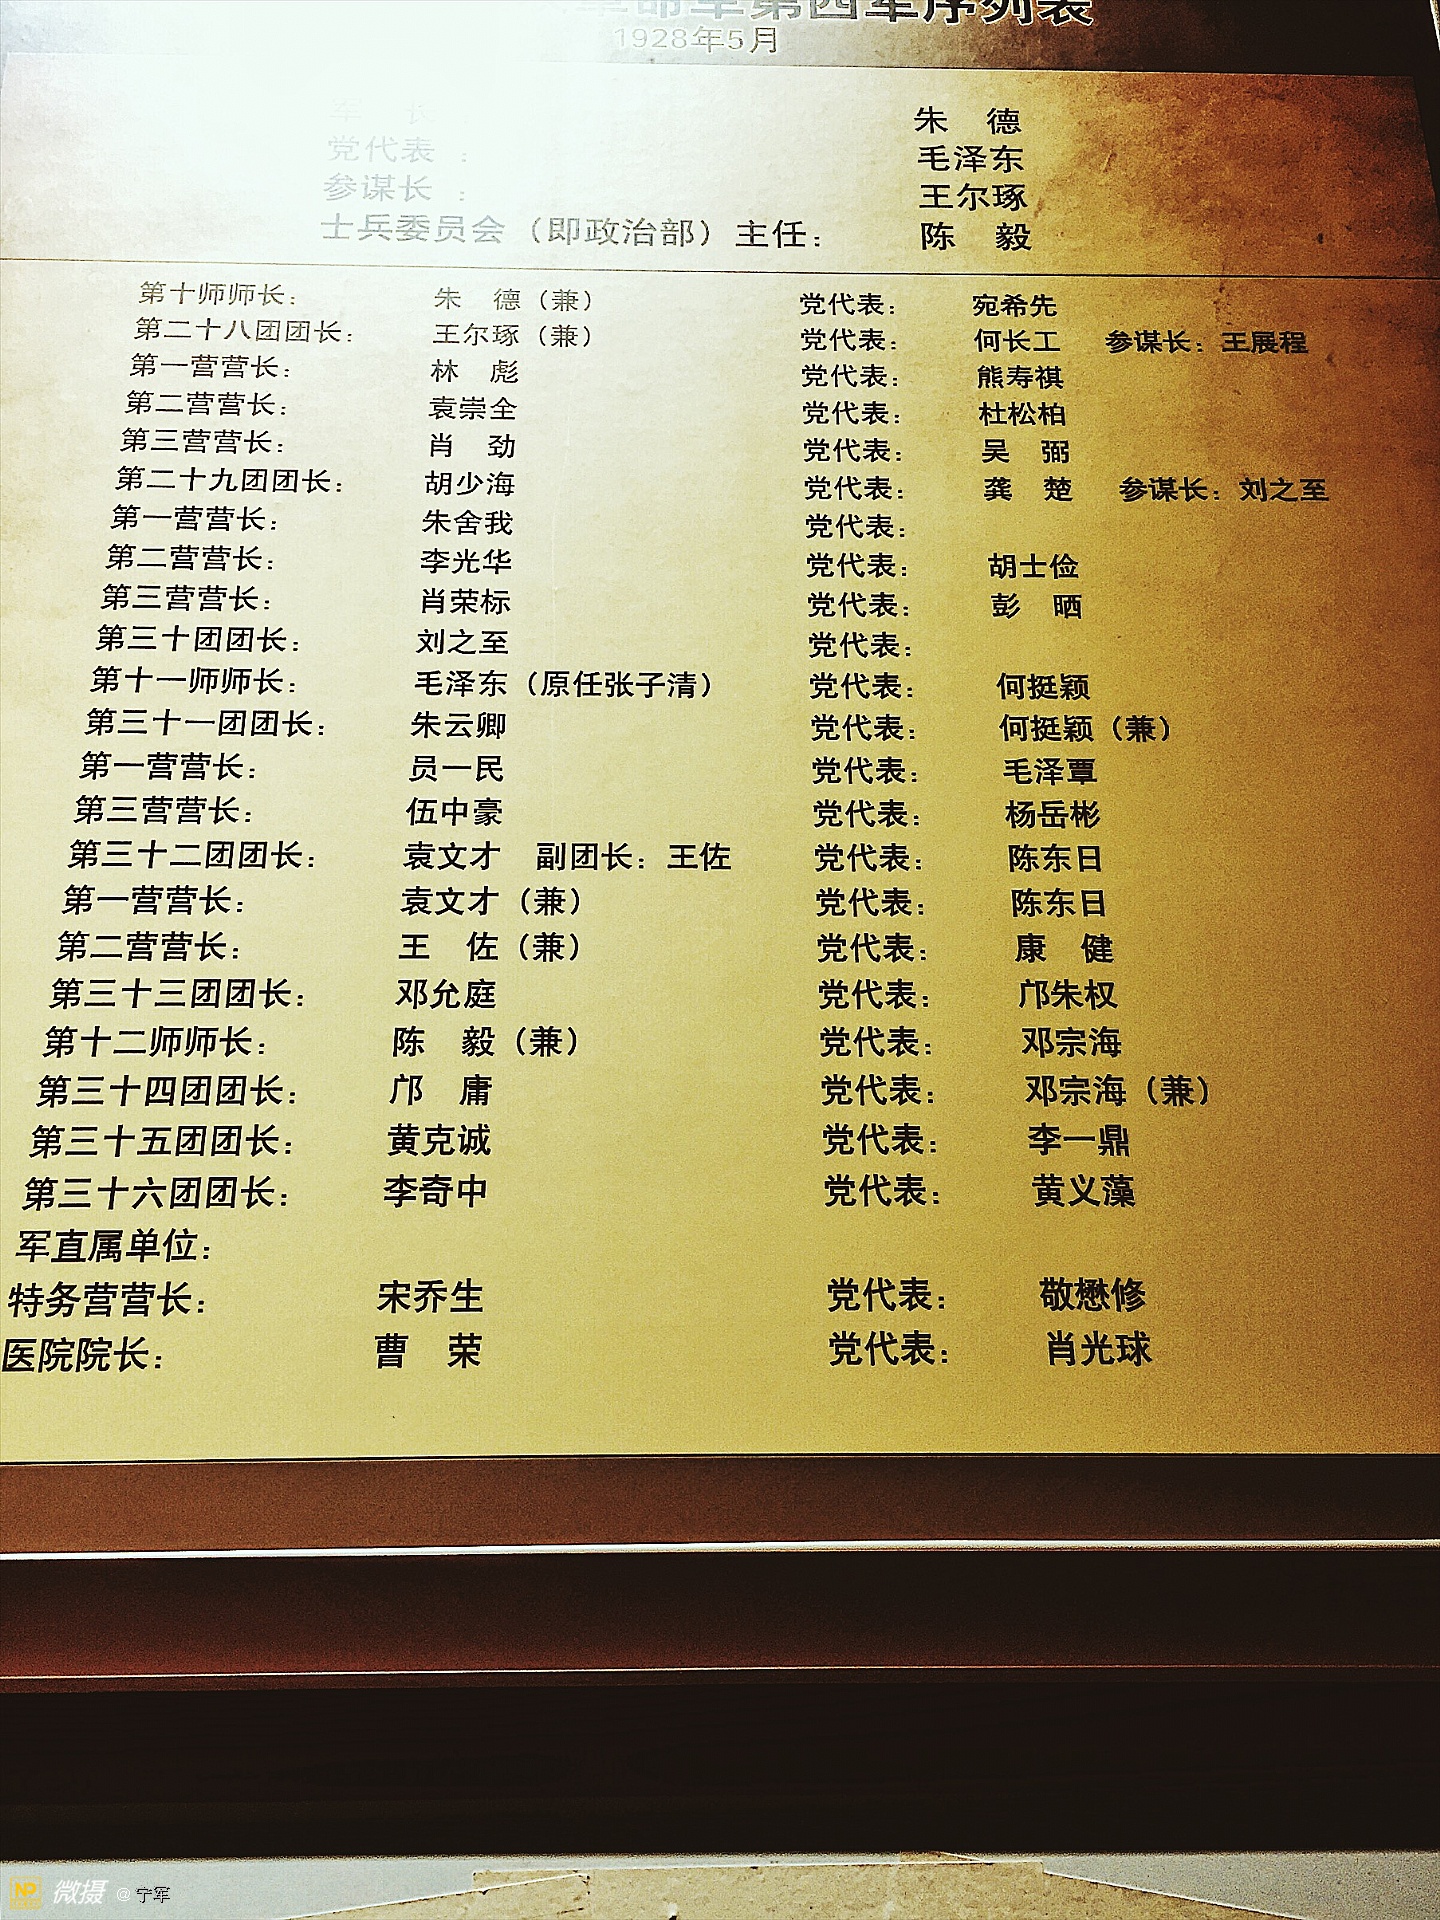 革命军第四军序列表
1928年5月
军 长： 朱 德
党代表： 毛泽东
参谋长： 王尔琢
士兵委员会（即政治部）主任： 陈 毅
第十师师长： 朱 德（兼） 党代表： 宛希先
第二十八团团长： 王尔琢（兼） 党代表： 何长工 参谋长：王展程
第一营营长： 林 彪 党代表： 熊寿祺
第二营营长： 袁崇全 党代表： 杜松柏
第三营营长： 肖 劲 党代表： 吴 弼
第二十九团团长： 胡少海 党代表： 龚 楚 参谋长：刘之至
第一营营长： 朱舍我 党代表：
第二营营长： 李光华 党代表： 胡士俭
第三营营长： 肖荣标 党代表： 彭 晒
第三十团团长： 刘之至 党代表：
第十一师师长： 毛泽东（原任张子清） 党代表： 何挺颖
第三十一团团长： 朱云卿 党代表： 何挺颖（兼）
第一营营长： 员一民 党代表： 毛泽覃
第三营营长： 伍中豪 党代表： 杨岳彬
第三十二团团长： 袁文才 副团长：王佐 党代表： 陈东日
第一营营长： 袁文才（兼） 党代表： 陈东日
第二营营长： 王 佐（兼） 党代表： 康 健
第三十三团团长： 邓允庭 党代表： 邝朱权
第十二师师长： 陈 毅（兼） 党代表： 邓宗海
第三十四团团长： 邝 庸 党代表： 邓宗海（兼）
第三十五团团长： 黄克诚 党代表： 李一鼎
第三十六团团长： 李奇中 党代表： 黄义藻
军直属单位：
特务营营长： 宋乔生 党代表： 敬懋修
医院院长： 曹 荣 党代表： 肖光球
NP 微摄 @宁军